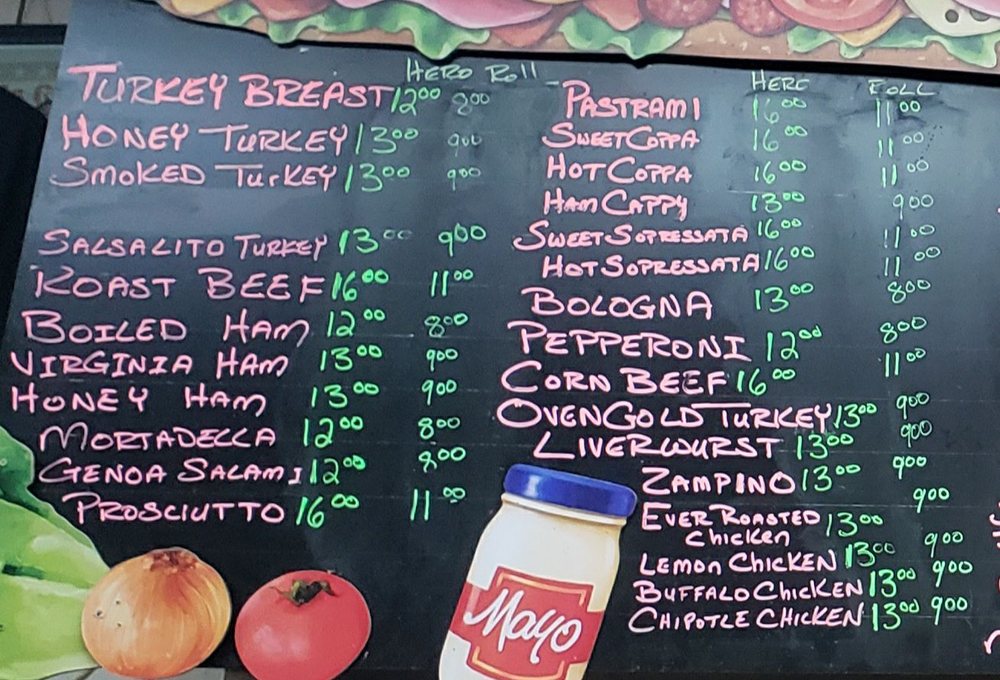 HERO Roll
TURKEY BREAST 1200 800
HONEY TURKEY 1300 900
SMOKED TURKEY 1300 900
SALSALITO TURKEY 1300 900
ROAST BEEF 1600 1100
BOILED HAM 1200 800
VIRGINIA HAM 1300 900
HONEY HAM 1300 900
MORTADELLA 1200 800
GENOA SALAMI 1200 800
PROSCIUTTO 1600 1100
HERO ROLL
PASTRAMI 1600 1100
SWEET COPPA 1600 1100
HOT COPPA 1600 1100
HAM CAPPY 1300 900
SWEET SOPRESSATA 1600 1100
HOT SOPRESSATA 1600 1100
BOLOGNA 1300 800
PEPPERONI 1200 800
CORN BEEF 1600 1100
OVENGOLD TURKEY 1300 900
LIVERWURST 1300 900
ZAMPINO 1300 900
EVER ROASTED 1300 900
Chicken
LEMON CHICKEN 1300 900
BUFFALO CHICKEN 1300 900
CHIPOTLE CHICKEN 1300 900
Mayo